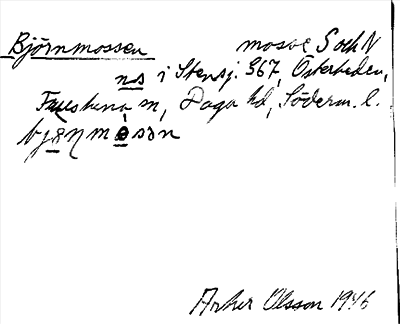 Björnmossen mosse S och N
ns i Stensj. 367, Österheden,
m, Daga hd, Söderm. l.
bjœnmosən
Olsson 1946